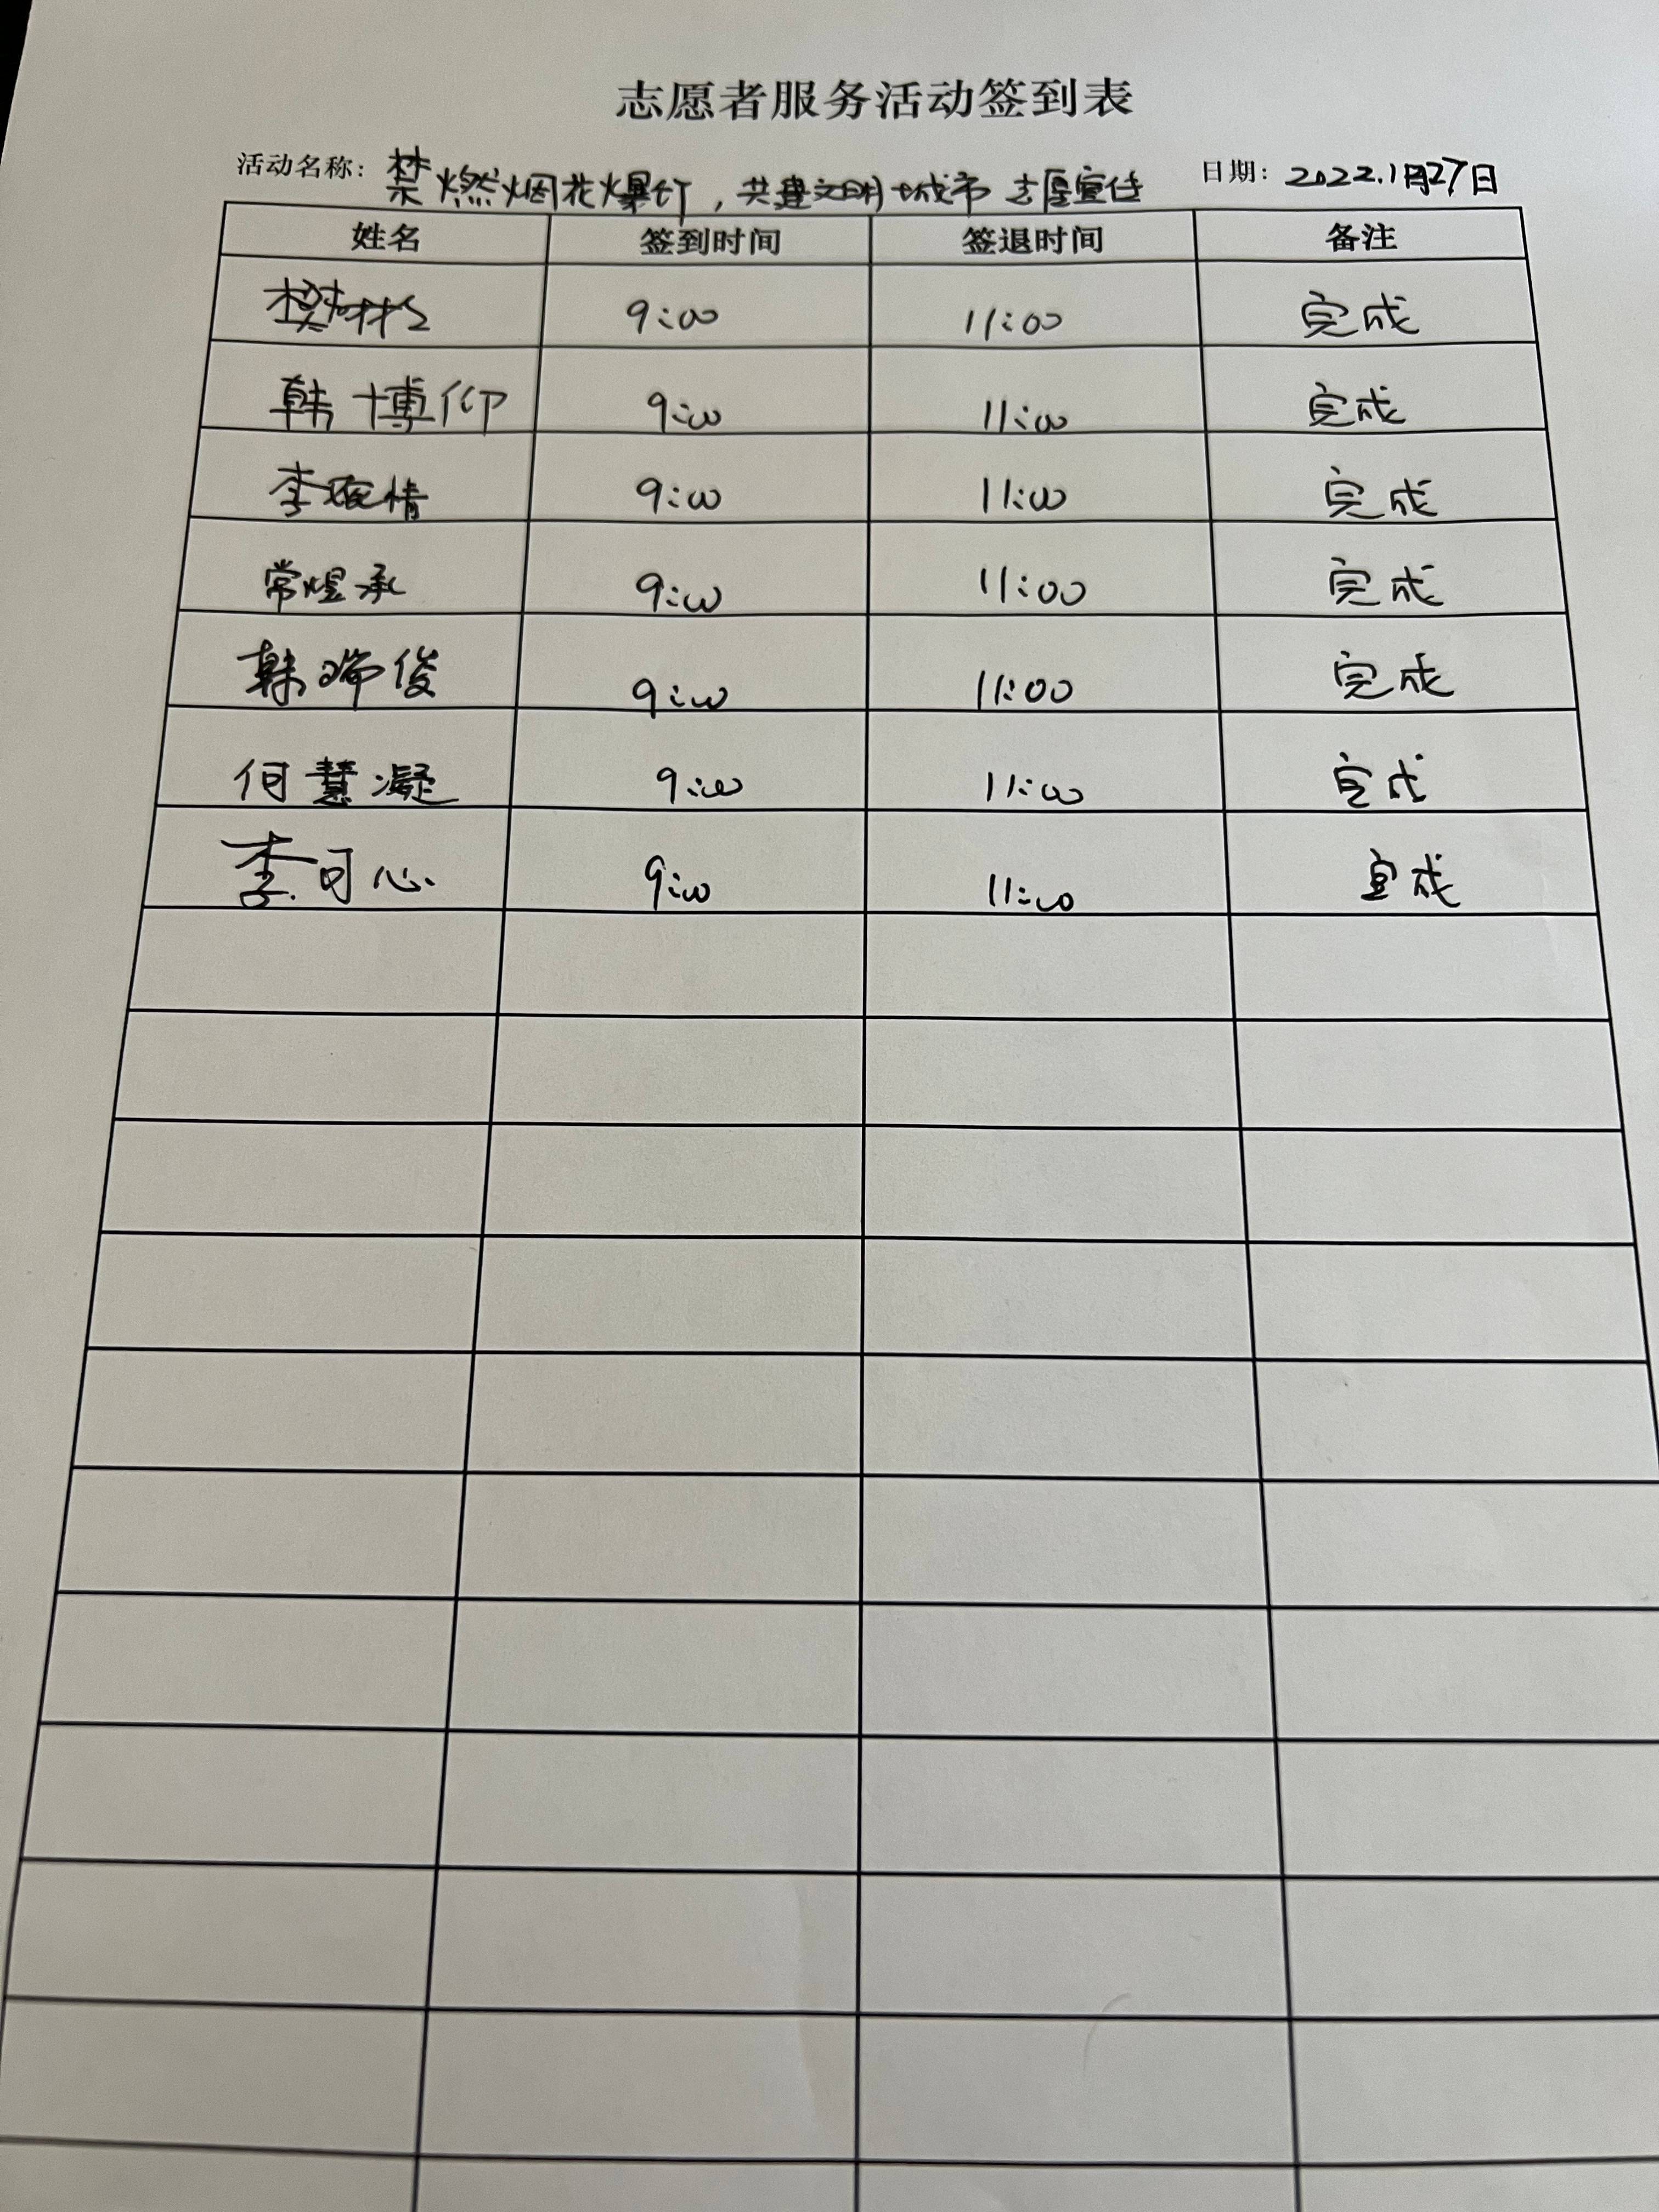 志愿者服务活动签到表
活动名称: 禁燃烟花爆竹,共建文明城市 志愿宣传 日期: 2022.1月27日
姓名 签到时间 签退时间 备注
樊 9:00 11:00 完成
韩博仰 9:00 11:00 完成
李婉情 9:00 11:00 完成
常煜承 9:00 11:00 完成
韩瑞俊 9:00 11:00 完成
何慧凝 9:00 11:00 完成
李可心 9:00 11:00 完成